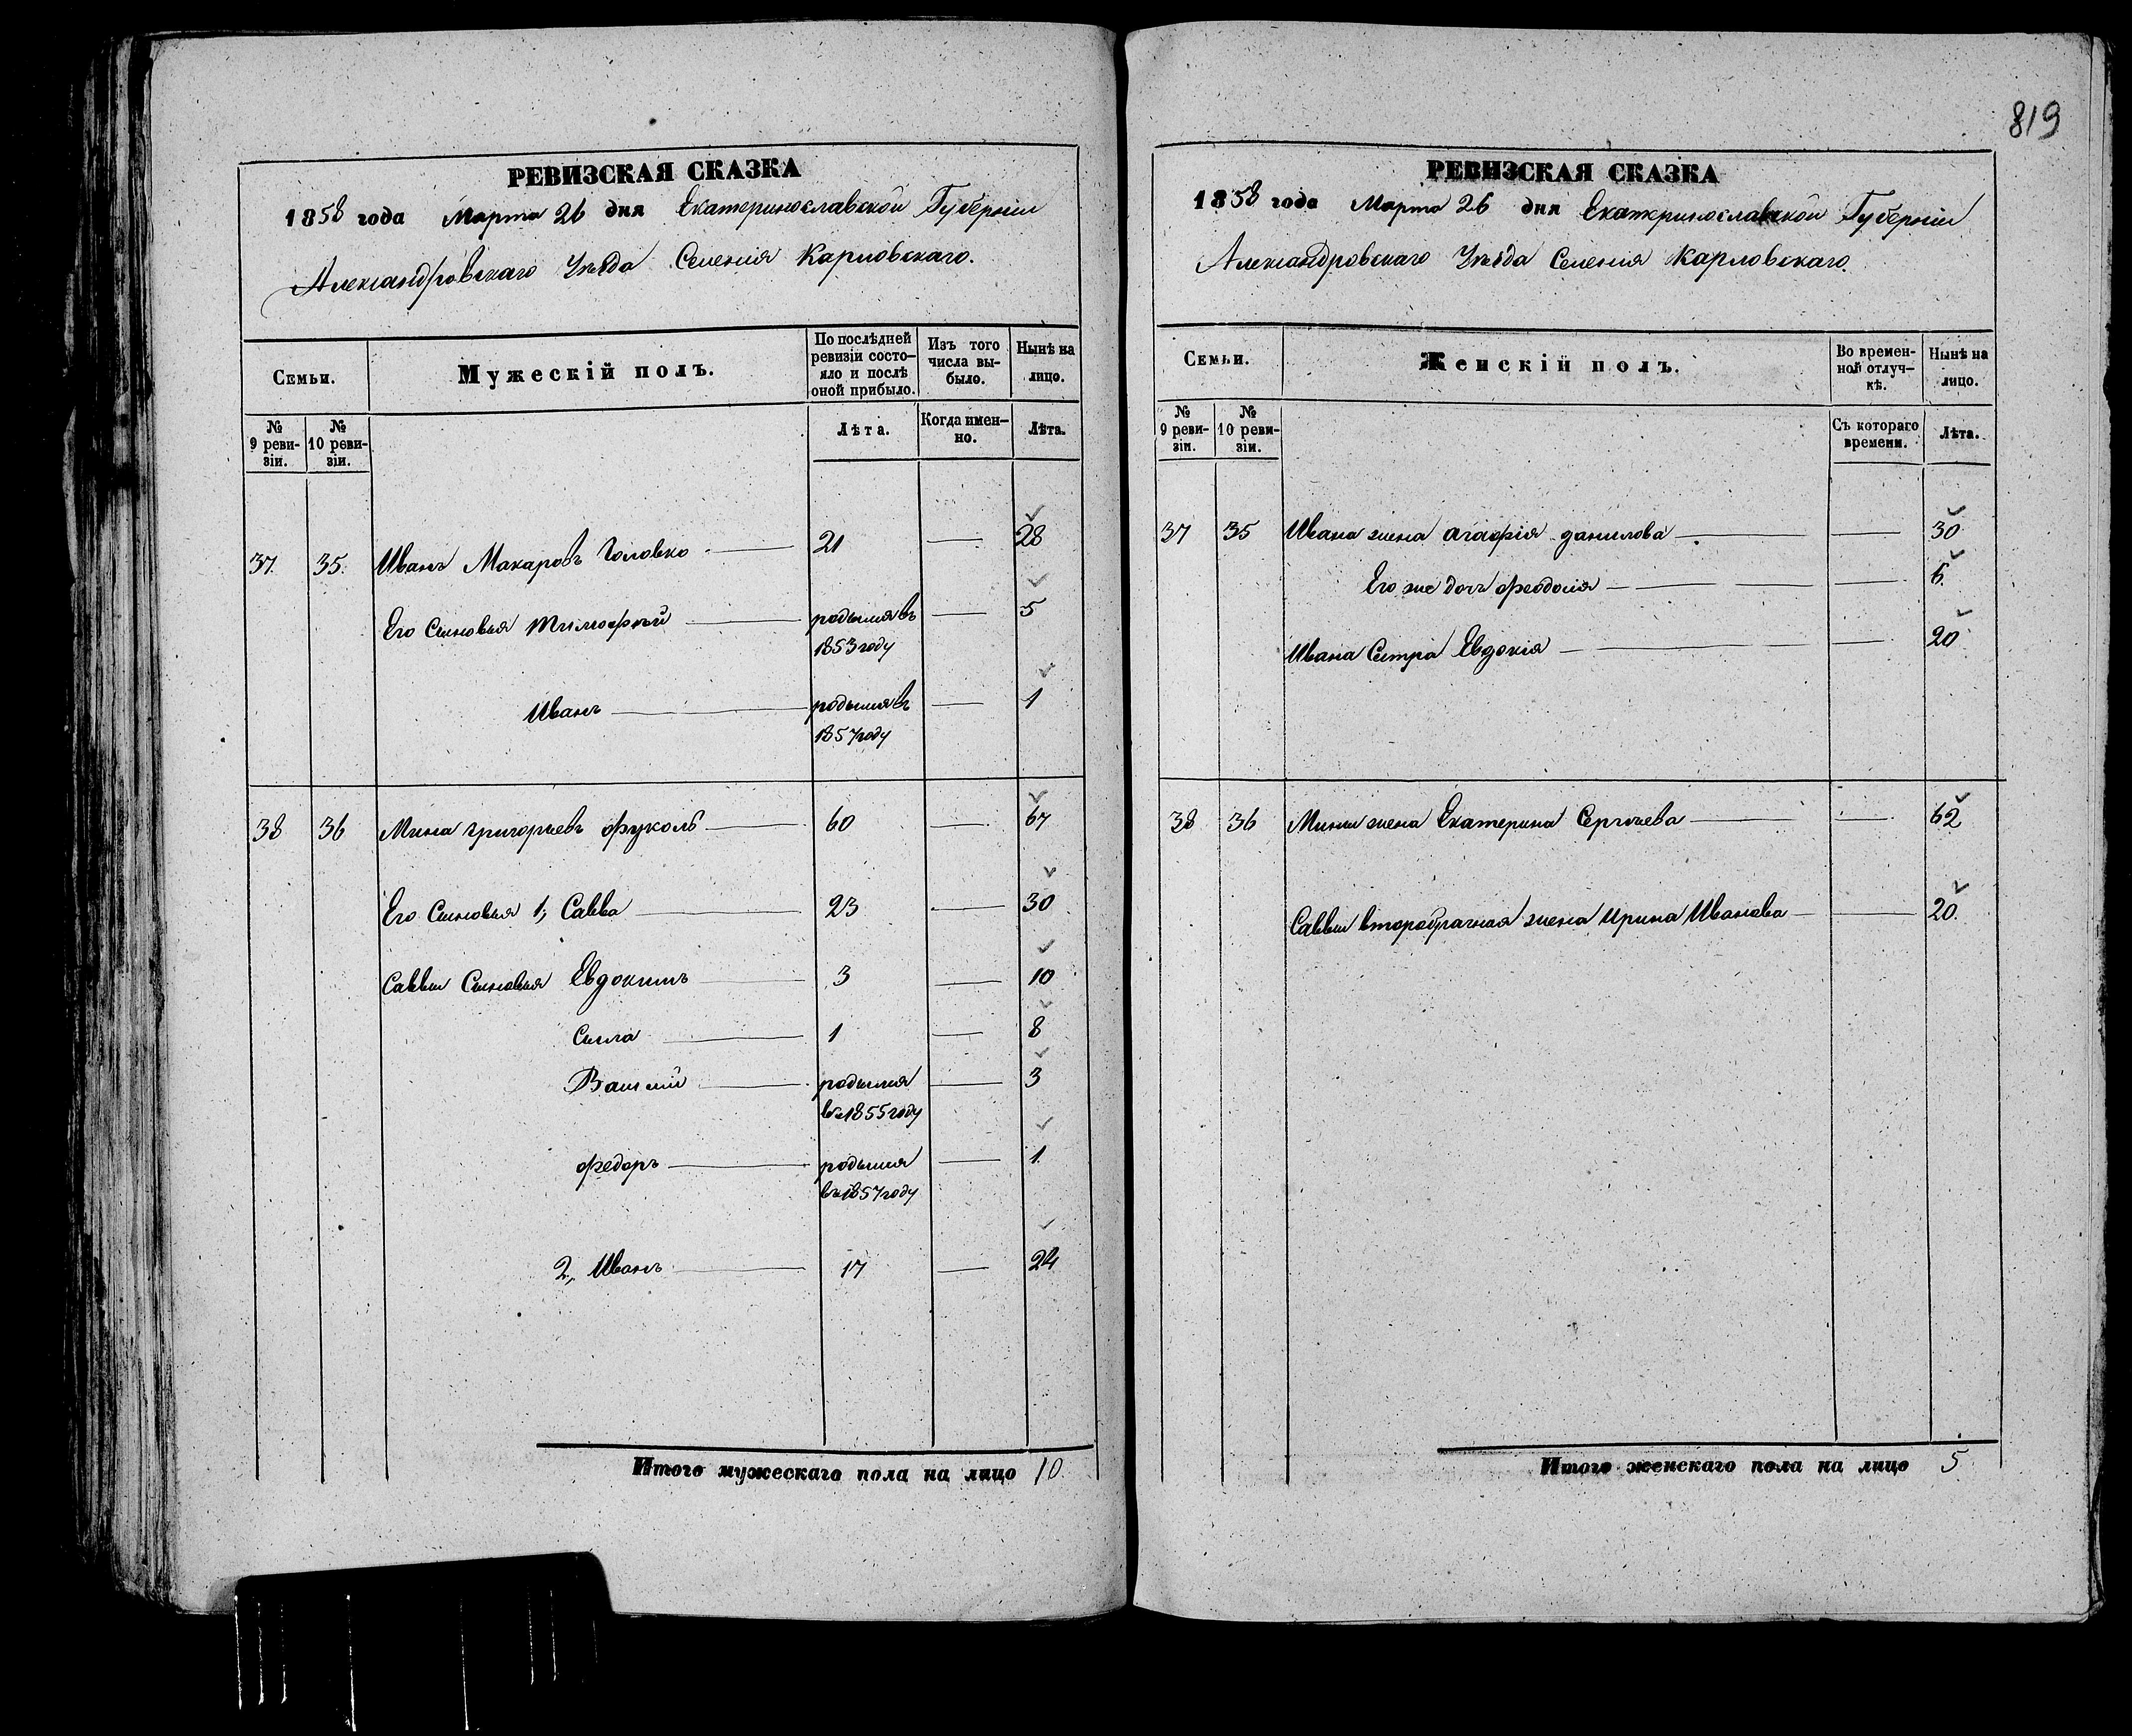 819
РЕВИЗСКАЯ СКАЗКА
1858 года Марта 26 дня Екатеринославской Губерніи
Александровскаго Уѣзда Селенія Карловскаго.
Семьи.
Мужескій полъ.
По послѣдней ревизіи состояло и послѣ оной прибыло.
Изъ того числа выбыло.
Нынѣ на лицо.
№ 9 ревизіи.
№ 10 ревизіи.
Лѣта.
Когда именно.
Лѣта.
37. 35. Иванъ Макаровъ Головко 21 — 28
Его Сыновья Тимофѣй родился въ — 5
1853 году
Иванъ родился въ — 1
1857 году
38 36 Мина Григорьевъ 60 — 67
Его Сыновья 1, Савва 23 — 30
Саввы Сыновья Евдокимъ 3 — 10
Сила 1 — 8
Василій родился — 3
въ 1855 году
Федоръ родился — 1
въ 1857 году
2, Иванъ 17 — 24
Итого мужескаго пола на лицо 10
РЕВИЗСКАЯ СКАЗКА
1858 года Марта 26 дня Екатеринославской Губерніи
Александровскаго Уѣзда Селенія Карловскаго.
Семьи.
Женскій полъ.
Во временной отлучкѣ.
Нынѣ на лицо.
№ 9 ревизіи.
№ 10 ревизіи.
Съ котораго времени.
Лѣта.
37 35 Ивана жена Агафія Данилова — 30
Его же дочь Феодосія — 6
Ивана Сестра Евдокія — 20
38 36 Мины жена Екатерина Сергѣева — 62
Саввы второбрачная жена Ирина Иванова — 20.
Итого женскаго пола на лицо 5